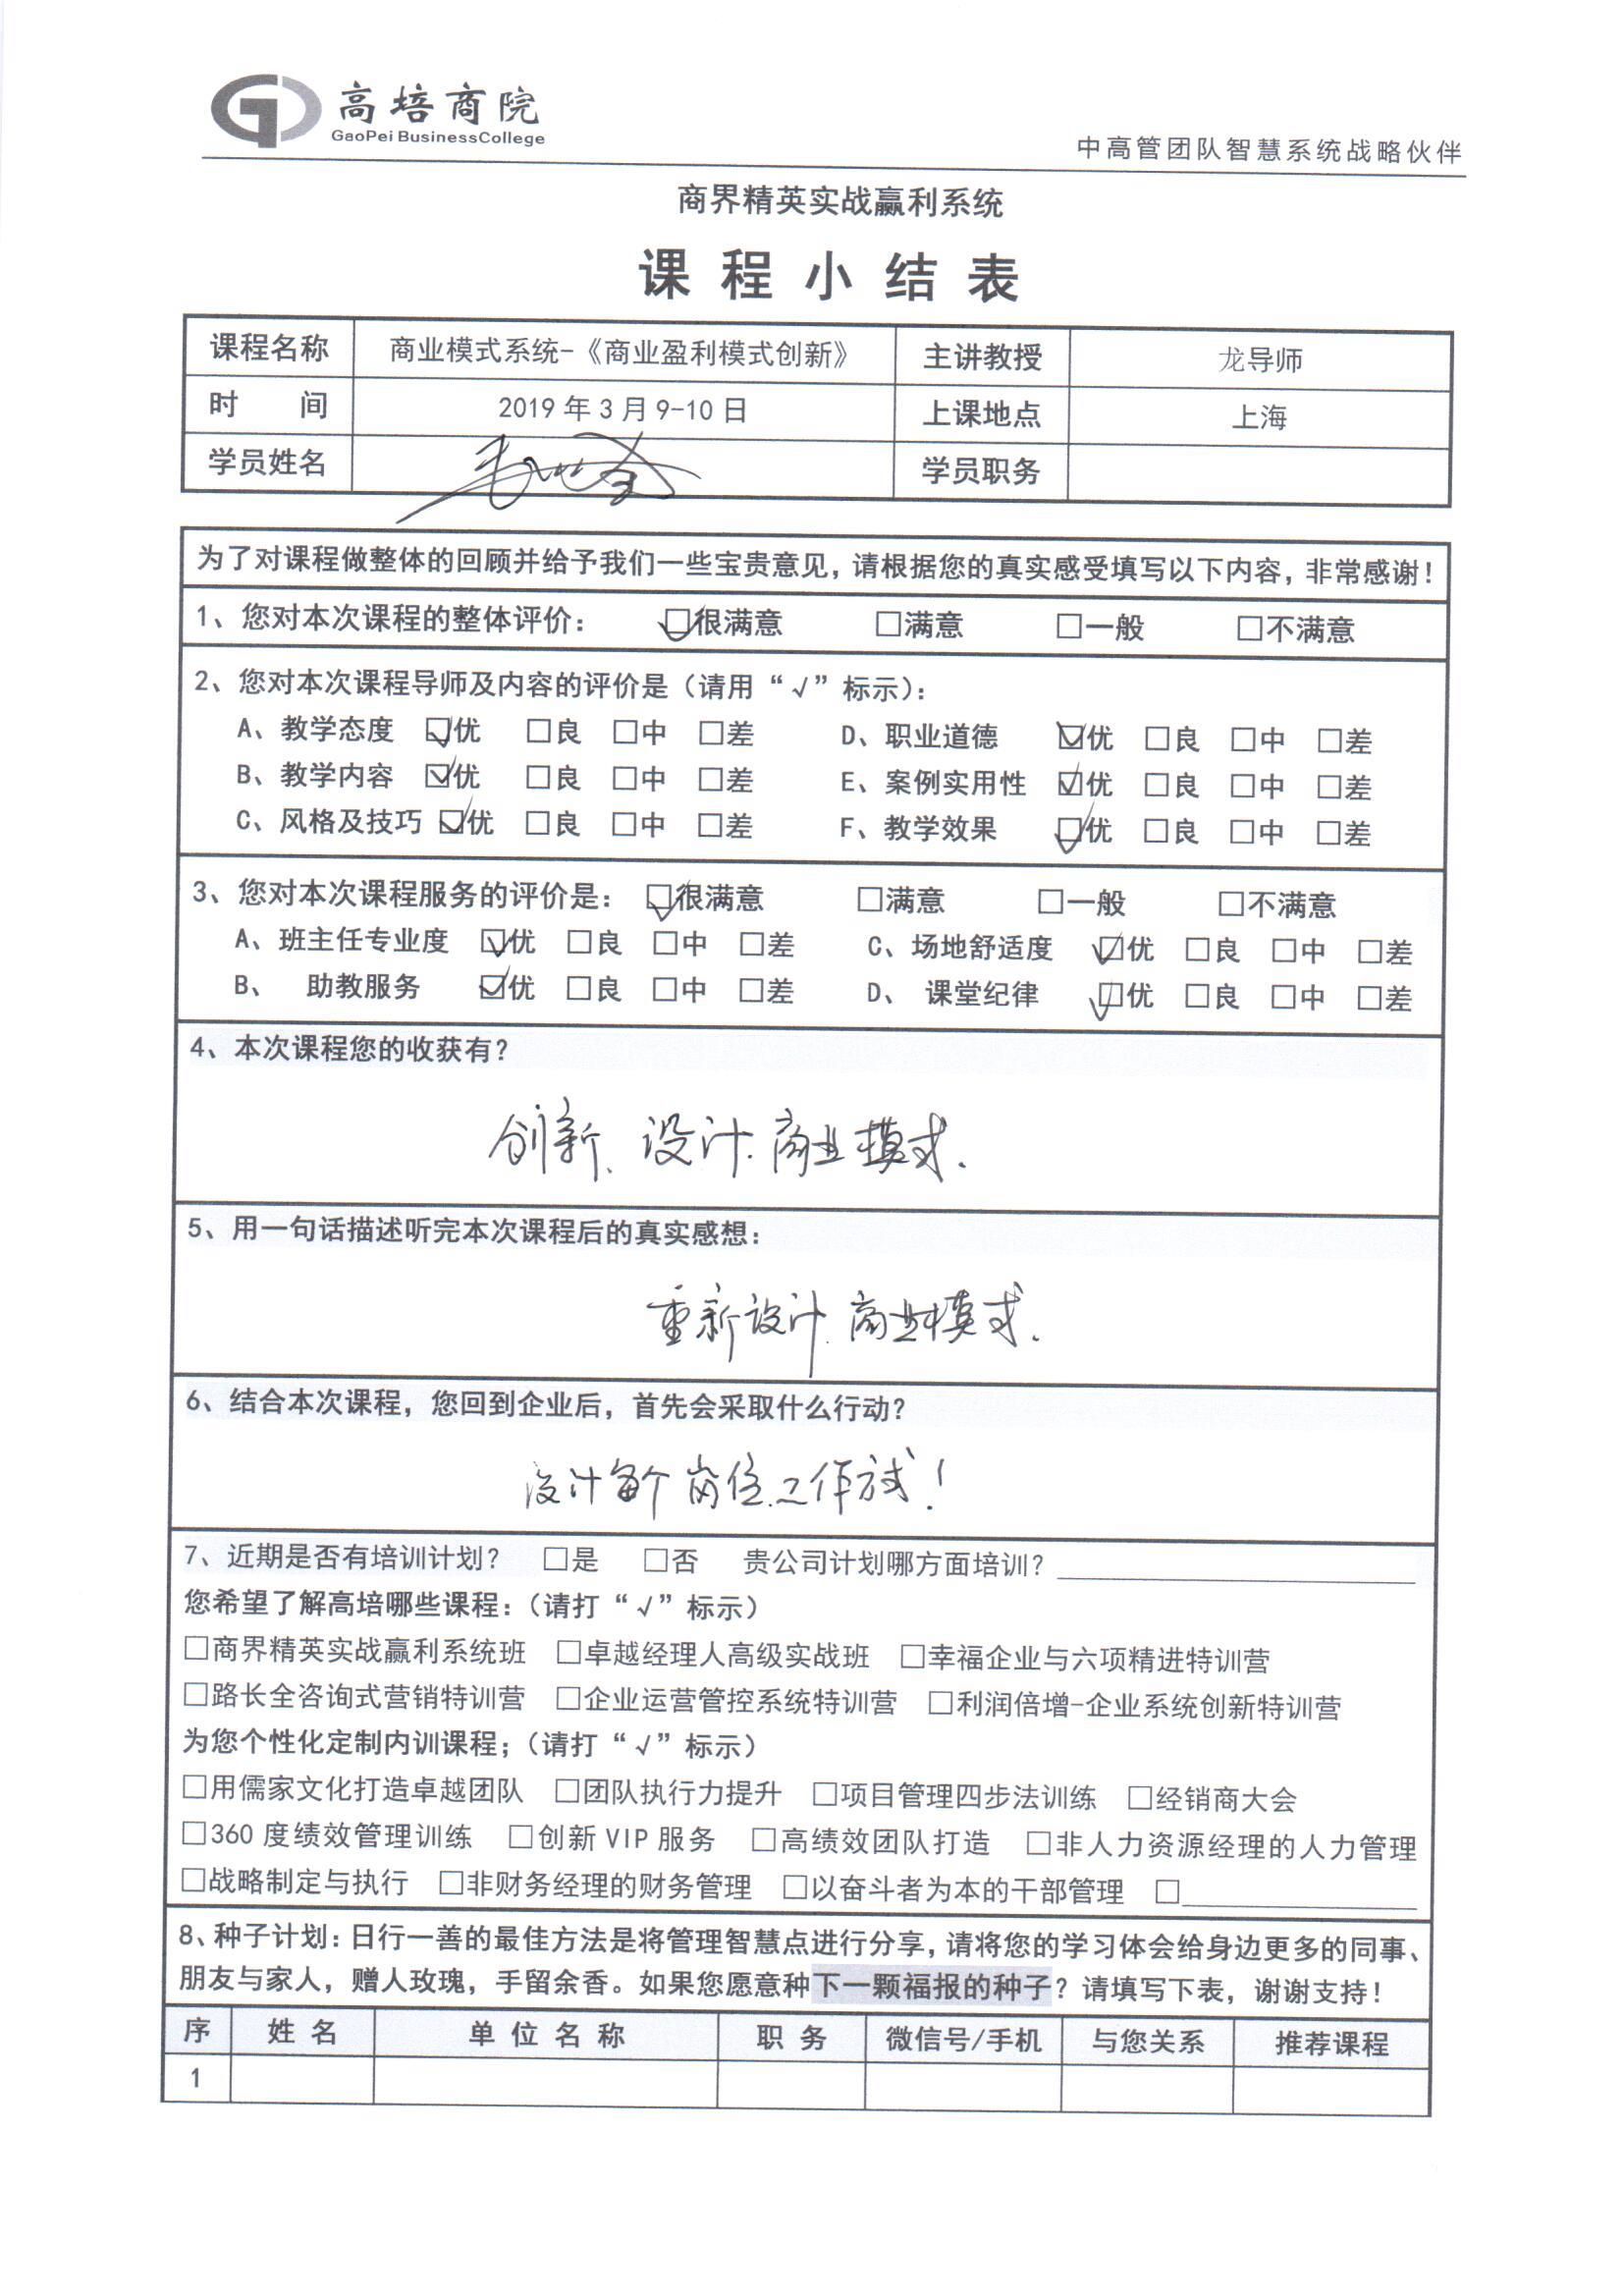 高培商院
GaoPei BusinessCollege
中高管团队智慧系统战略伙伴
商界精英实战赢利系统
课程小结表
课程名称 商业模式系统-《商业盈利模式创新》 主讲教授 龙导师
时 间 2019年3月9-10日 上课地点 上海
学员姓名 学员职务
为了对课程做整体的回顾并给予我们一些宝贵意见，请根据您的真实感受填写以下内容，非常感谢！
1、您对本次课程的整体评价： ☑很满意 □满意 □一般 □不满意
2、您对本次课程导师及内容的评价是（请用“√”标示）：
A、教学态度 ☑优 □良 □中 □差 D、职业道德 ☑优 □良 □中 □差
B、教学内容 ☑优 □良 □中 □差 E、案例实用性 ☑优 □良 □中 □差
C、风格及技巧 ☑优 □良 □中 □差 F、教学效果 ☑优 □良 □中 □差
3、您对本次课程服务的评价是： ☑很满意 □满意 □一般 □不满意
A、班主任专业度 ☑优 □良 □中 □差 C、场地舒适度 ☑优 □良 □中 □差
B、 助教服务 ☑优 □良 □中 □差 D、 课堂纪律 ☑优 □良 □中 □差
4、本次课程您的收获有？
创新、设计.商业模式.
5、用一句话描述听完本次课程后的真实感想：
重新设计.商业模式.
6、结合本次课程，您回到企业后，首先会采取什么行动？
设计每个岗位工作方式！
7、近期是否有培训计划？ □是 □否 贵公司计划哪方面培训？
您希望了解高培哪些课程：（请打“√”标示）
□商界精英实战赢利系统班 □卓越经理人高级实战班 □幸福企业与六项精进特训营
□路长全咨询式营销特训营 □企业运营管控系统特训营 □利润倍增-企业系统创新特训营
为您个性化定制内训课程；（请打“√”标示）
□用儒家文化打造卓越团队 □团队执行力提升 □项目管理四步法训练 □经销商大会
□360度绩效管理训练 □创新VIP服务 □高绩效团队打造 □非人力资源经理的人力管理
□战略制定与执行 □非财务经理的财务管理 □以奋斗者为本的干部管理 □
8、种子计划：日行一善的最佳方法是将管理智慧点进行分享，请将您的学习体会给身边更多的同事、
朋友与家人，赠人玫瑰，手留余香。如果您愿意种下一颗福报的种子？请填写下表，谢谢支持！
序 姓名 单位名称 职务 微信号/手机 与您关系 推荐课程
1